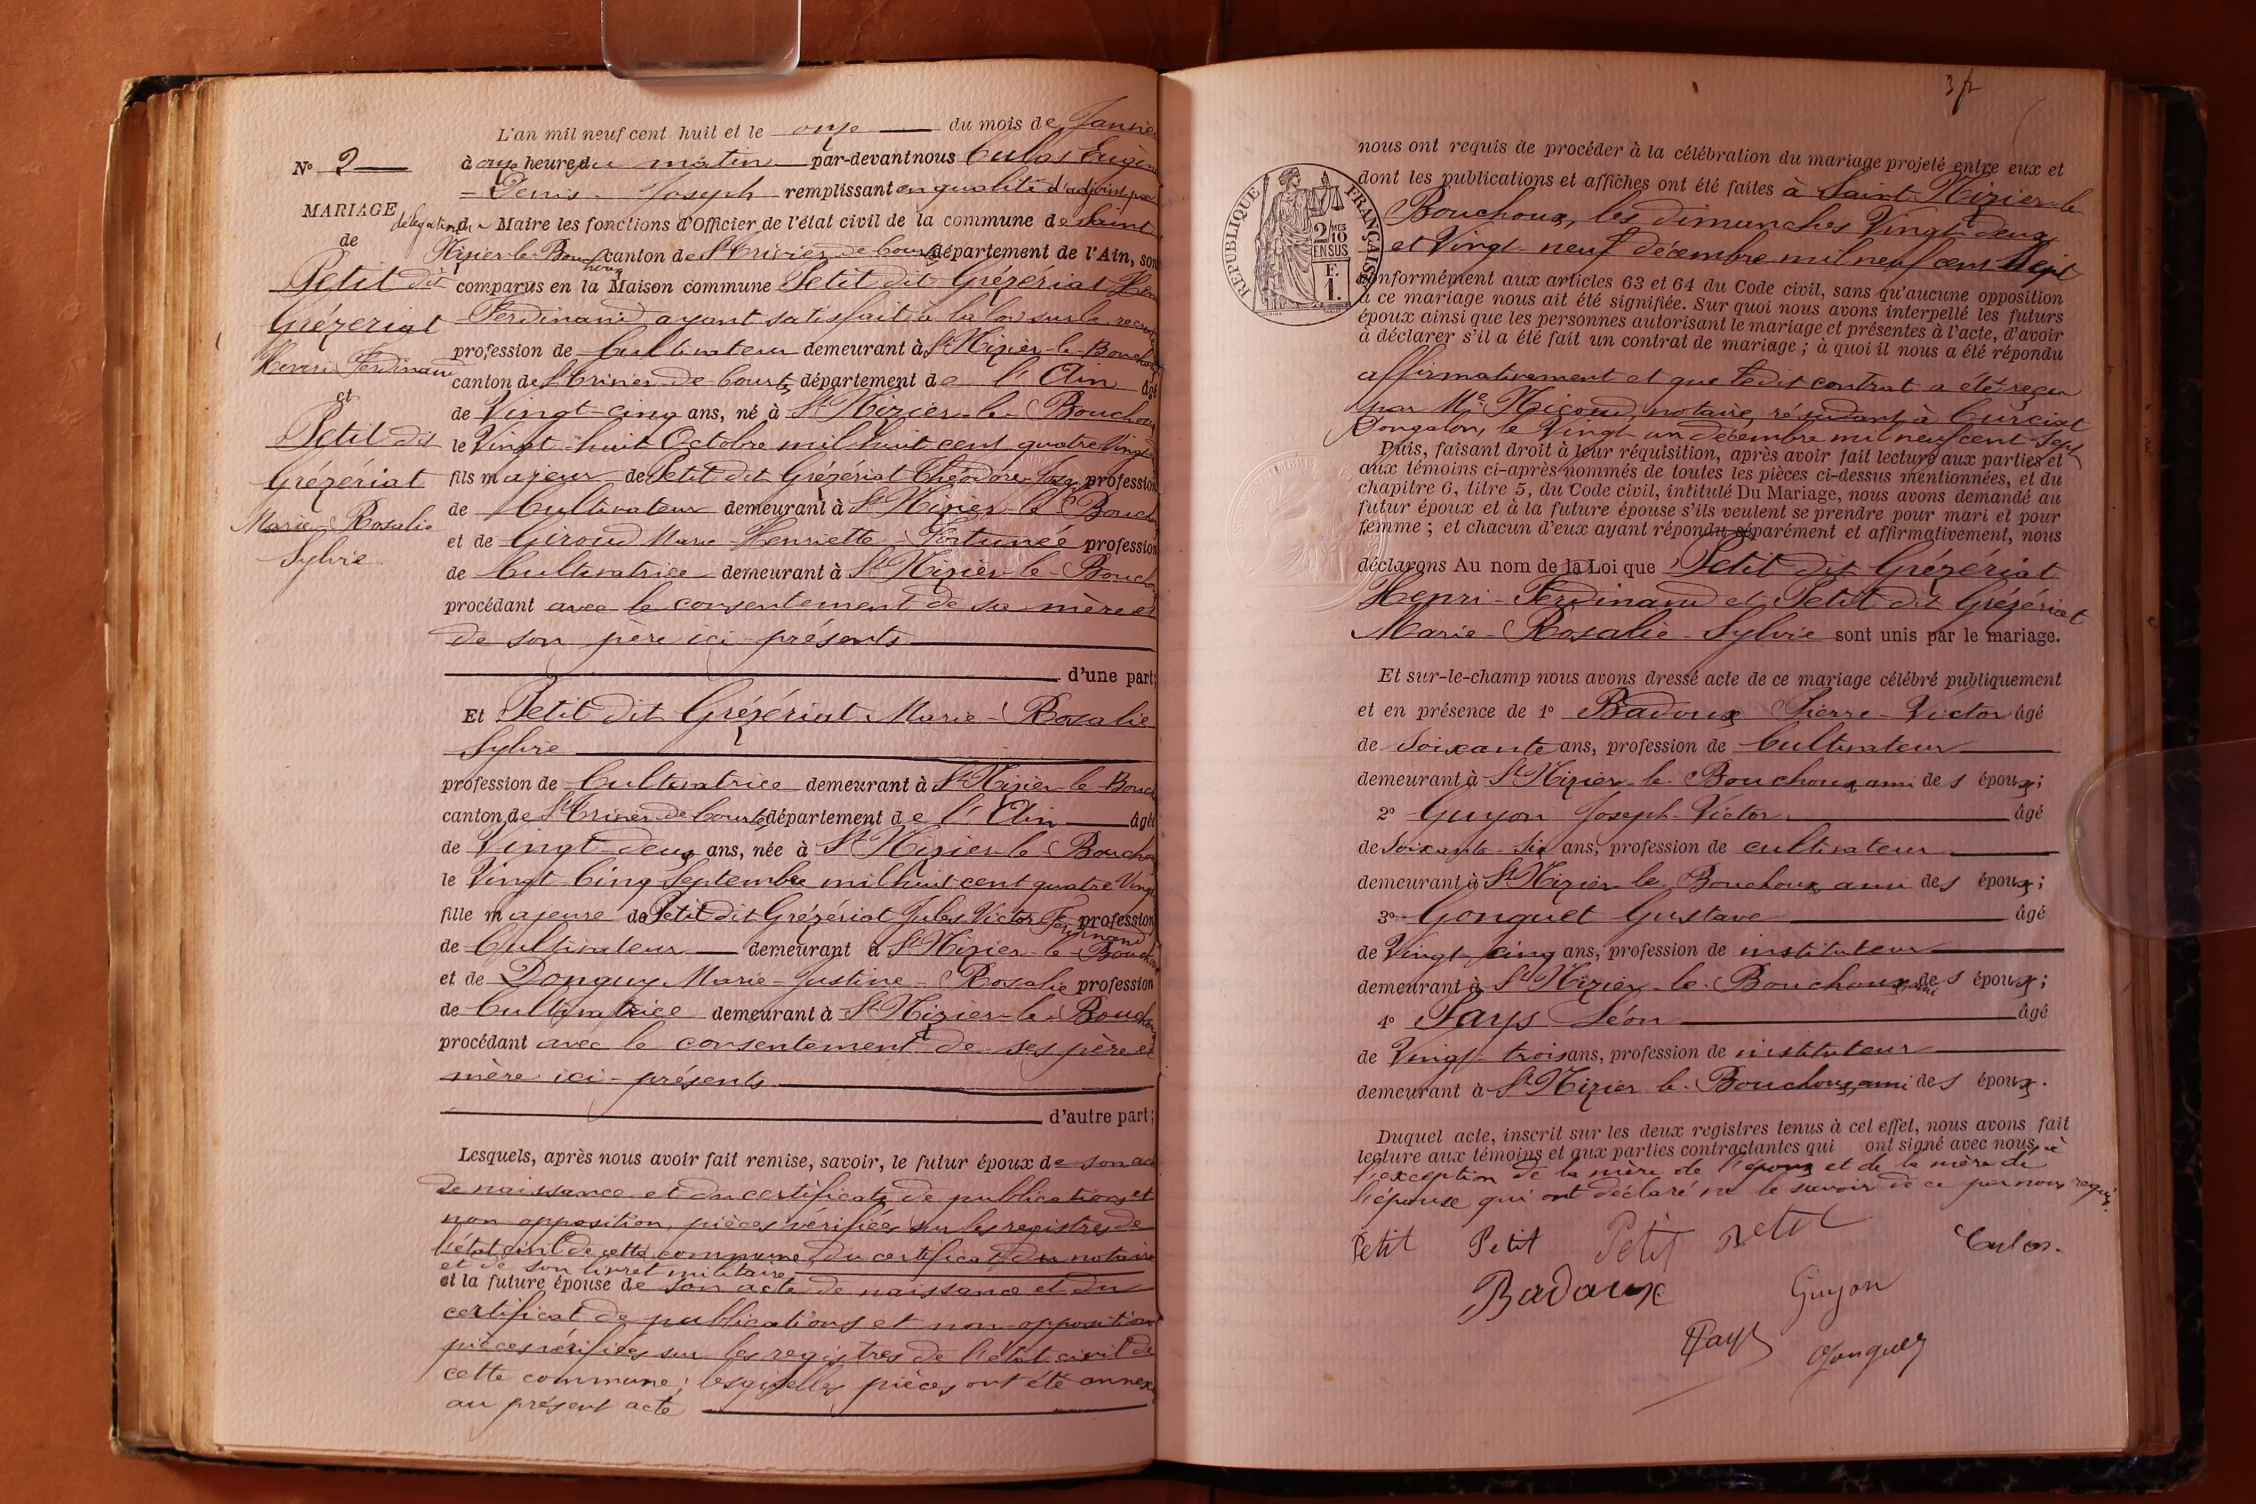 L'an mil neuf cent huit et le onze du mois de Janvie
N° 2
à onze heures du matin par-devant nous Culas Eugèn
Denis Joseph remplissant en qualité d'adjoint par
MARIAGE
délégation du Maire les fonctions d'Officier de l'état civil de la commune de Saint
de
Nizier-le-Bouchoux canton de St Trivier de Courtes département de l'Ain, son
Petit dit
comparus en la Maison commune Petit dit Grézériat Hen
Grézeriat
Ferdinand ayant satisfait à la loi sur le recru
Henri Ferdinand
profession de Cultivateur demeurant à St Nizier-le-Bouchoux
canton de St Trivier de Courtes département de l'Ain âgé
et
de Vingt-cinq ans, né à St Nizier-le-Bouchou
Petit dit
le Vingt-huit Octobre mil huit cent quatre Vingt
Grézériat
fils majeur de Petit dit Grézériat Théodore profession
Marie Rosalie
de Cultivateur demeurant à St Nizier-le-Bouch
Sylvie
et de Giroud Marie Henriette Fortunée profession
de Cultivatrice demeurant à St Nizier-le-Boucho
procédant avec le consentement de sa mère et
de son père ici présents
d'une part;
Et Petit dit Grézériat Marie-Rosalie
Sylvie
profession de Cultivatrice demeurant à St Nizier-le-Bouch
canton de St Trivier de Courtes département de l'Ain âgée
de Vingt deux ans, née à St Nizier-le-Boucho
le Vingt Cinq Septembre mil huit cent quatre Vingt
fille majeure de Petit dit Grézériat Jules Victor Ferdinand profession
de Cultivateur demeurant à St Nizier-le-Bouchou
et de Donguy Marie-Justine-Rosalie profession
de Cultivatrice demeurant à St Nizier-le-Bouchoux
procédant avec le consentement de ses père et
mère ici-présents
d'autre part;
Lesquels, après nous avoir fait remise, savoir, le futur époux de son ac
de naissance et du certificat de publications et
non opposition, pièces vérifiées sur les registres de
l'état civil de cette commune, du certificat du notaire
et de son livret militaire
et la future épouse de son acte de naissance et du
certificat de publications et non-opposition
pièces vérifiées sur les registres de l'état civil de
cette commune; lesquelles pièces ont été annex
au présent acte
nous ont requis de procéder à la célébration du mariage projeté entre eux et
dont les publications et affiches ont été faites à Saint-Nizier-le
Bouchoux, les dimanches Vingt-deux
et Vingt-neuf décembre mil neuf cent sept
RÉPUBLIQUE FRANÇAISE
2/10
EN SUS
F.
1.
conformément aux articles 63 et 64 du Code civil, sans qu'aucune opposition
à ce mariage nous ait été signifiée. Sur quoi nous avons interpellé les futurs
époux ainsi que les personnes autorisant le mariage et présentes à l'acte, d'avoir
à déclarer s'il a été fait un contrat de mariage; à quoi il nous a été répondu
affirmativement et que ledit contrat a été reçu
par Me Niçoud, notaire, résidant à Curciat
Dongalon, le Vingt un décembre mil neuf cent sept
Puis, faisant droit à leur réquisition, après avoir fait lecture aux parties et
aux témoins ci-après nommés de toutes les pièces ci-dessus mentionnées, et du
chapitre 6, titre 5, du Code civil, intitulé Du Mariage, nous avons demandé au
futur époux et à la future épouse s'ils veulent se prendre pour mari et pour
femme; et chacun d'eux ayant répondu séparément et affirmativement, nous
déclarons Au nom de la Loi que Petit dit Grézériat
Henri-Ferdinand et Petit dit Grézériat
Marie-Rosalie-Sylvie sont unis par le mariage.
Et sur-le-champ nous avons dressé acte de ce mariage célébré publiquement
et en présence de 1° Badoux Pierre-Victor âgé
de Soixante ans, profession de Cultivateur
demeurant à St Nizier-le-Bouchoux ami des époux;
2° Guyon Joseph-Victor âgé
de Soixante-six ans, profession de cultivateur
demeurant à St Nizier-le-Bouchoux ami des époux;
3° Gonguet Gustave âgé
de Vingt-cinq ans, profession de instituteur
demeurant à St Nizier-le-Bouchoux ami des époux;
4° Pays Léon âgé
de Vingt-trois ans, profession de instituteur
demeurant à St Nizier-le-Bouchoux ami des époux.
Duquel acte, inscrit sur les deux registres tenus à cet effet, nous avons fait
lecture aux témoins et aux parties contractantes qui ont signé avec nous, à
l'exception de la mère de l'époux et de la mère de
l'épouse qui ont déclaré ne le savoir de ce par nous requis.
Petit Petit Petit Petit Culas.
Badoux Guyon
Pays Gonguet